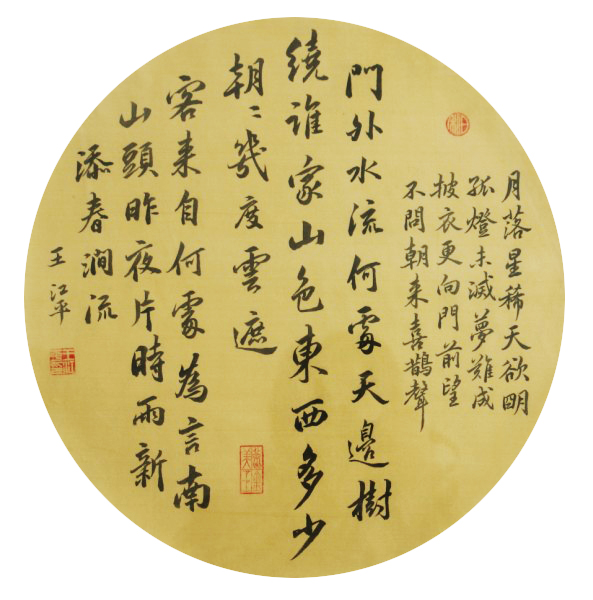 月落星稀天欲明
孤燈未滅夢難成
披衣更向門前望
不問朝來喜鵲聲
門外水流何處天邊樹
繞誰家山色東西多少
朝々幾度雲遮
客來自何處為言南
山頭昨夜片時雨新
添春澗流
王江平